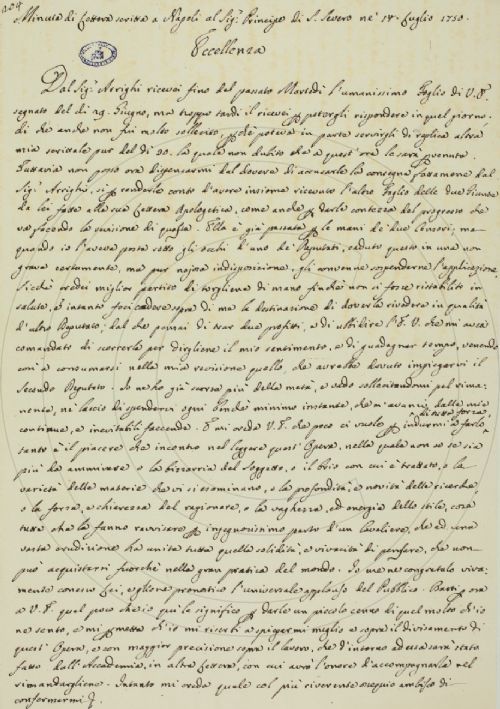 204
Minuta di Lettera scritta a Napoli al Sig.r Principe di S. Severo ne' 14. Luglio 1750.
Eccellenza
Dal Sig.r Arrighi ricevei fino del passato Martedì l'umanissimo Foglio di V. E.
segnato del dì 29. Giugno, ma troppo tardi il ricevei p potergli rispondere in quel giorno.
di che anche non fui molto sollecito, p che poteva in parte servirgli di replica altra
mia scrittale pur del dì 30. la quale non dubito che a quest'ora le sarà pervenuta.
Tuttavia non posso ora dispensarmi dal dovere di accusarle la consegna fattamene dal
Sig.r Arrighi, sì p renderle conto d'avere insieme ricevuto l'altro Foglio delle due Giunte
da lei fatte alla sua Lettera Apologetica, come anche p darle contezza del progresso che
và facendo la revisione di questa. Ella è già passata p le mani de' due Censori, ma
quando io l'aveva posta sotto gli occhi d'uno de' Deputati, caduto questo in una non
grave certamente, ma pur nojosa indisposizione, gli convenne sospenderne l'applicazione.
Sicché credei miglior partito di torgliena di mano finché non si fosse ristabilito in
salute, e intanto feci cadere sopra di me la destinazione di doverla rivedere in qualità
d'altro Deputato; dal che pensai di trar due profitti, e di ubbidire l'E. V. che mi aveva
comandato di scorrerla per dirgliene il mio sentimento, e di guadagnar tempo, venendo
così a consumarsi nella mia revisione quello, che avrebbe dovuto impiegarvi il
Secondo Deputato. Io ne ho già scorsa più della metà, e vado sollecitandomi pel rima-
nente, nè lascio di spendervi ogni benché minimo instante, che m'avanzi dalle mie
continue, e inevitabili faccende. E mi creda V. E. che poco ci vuole p indurmi a farlo
di tutta forza,
tanto è il piacere che incontro nel leggere quest'Opera, nella quale non so se sia
più da ammirare o la bizzarria del Soggetto, o il brio con cui è trattato, o la
varietà delle materie che vi si esaminano, o la profondità, e novità delle ricerche,
o la forza, e chiarezza del ragionare, o la vaghezza, ed energia dello stile, cose
tutte che la fanno ravvisare p ingegnosissimo parto d'un Cavaliere, che ad una
vasta erudizione ha unita tutta quella solidità, e vivacità di pensare, che non
può acquistarsi fuorché nella gran pratica del mondo. Io me ne congratulo viva-
mente con esso Lei, e gliene pronostico l'universale applauso del Pubblico. Basti p ora
a V. E. quel poco che io qui le significo p darle un piccolo cenno di quel molto ch'io
ne sento, e mi p metta ch'io mi riserbi a spiegarmi meglio e sopra il divisamento di
quest'Opera, e con maggior precisione sopra il lavoro, che d'intorno ad essa sarà stato
fatto dall'Accademia, in altra Lettera, con cui avrò l'onore d'accompagnarla nel
rimandargliene. Intanto mi creda quale col più riverente ossequio ambisco di
confermarmi